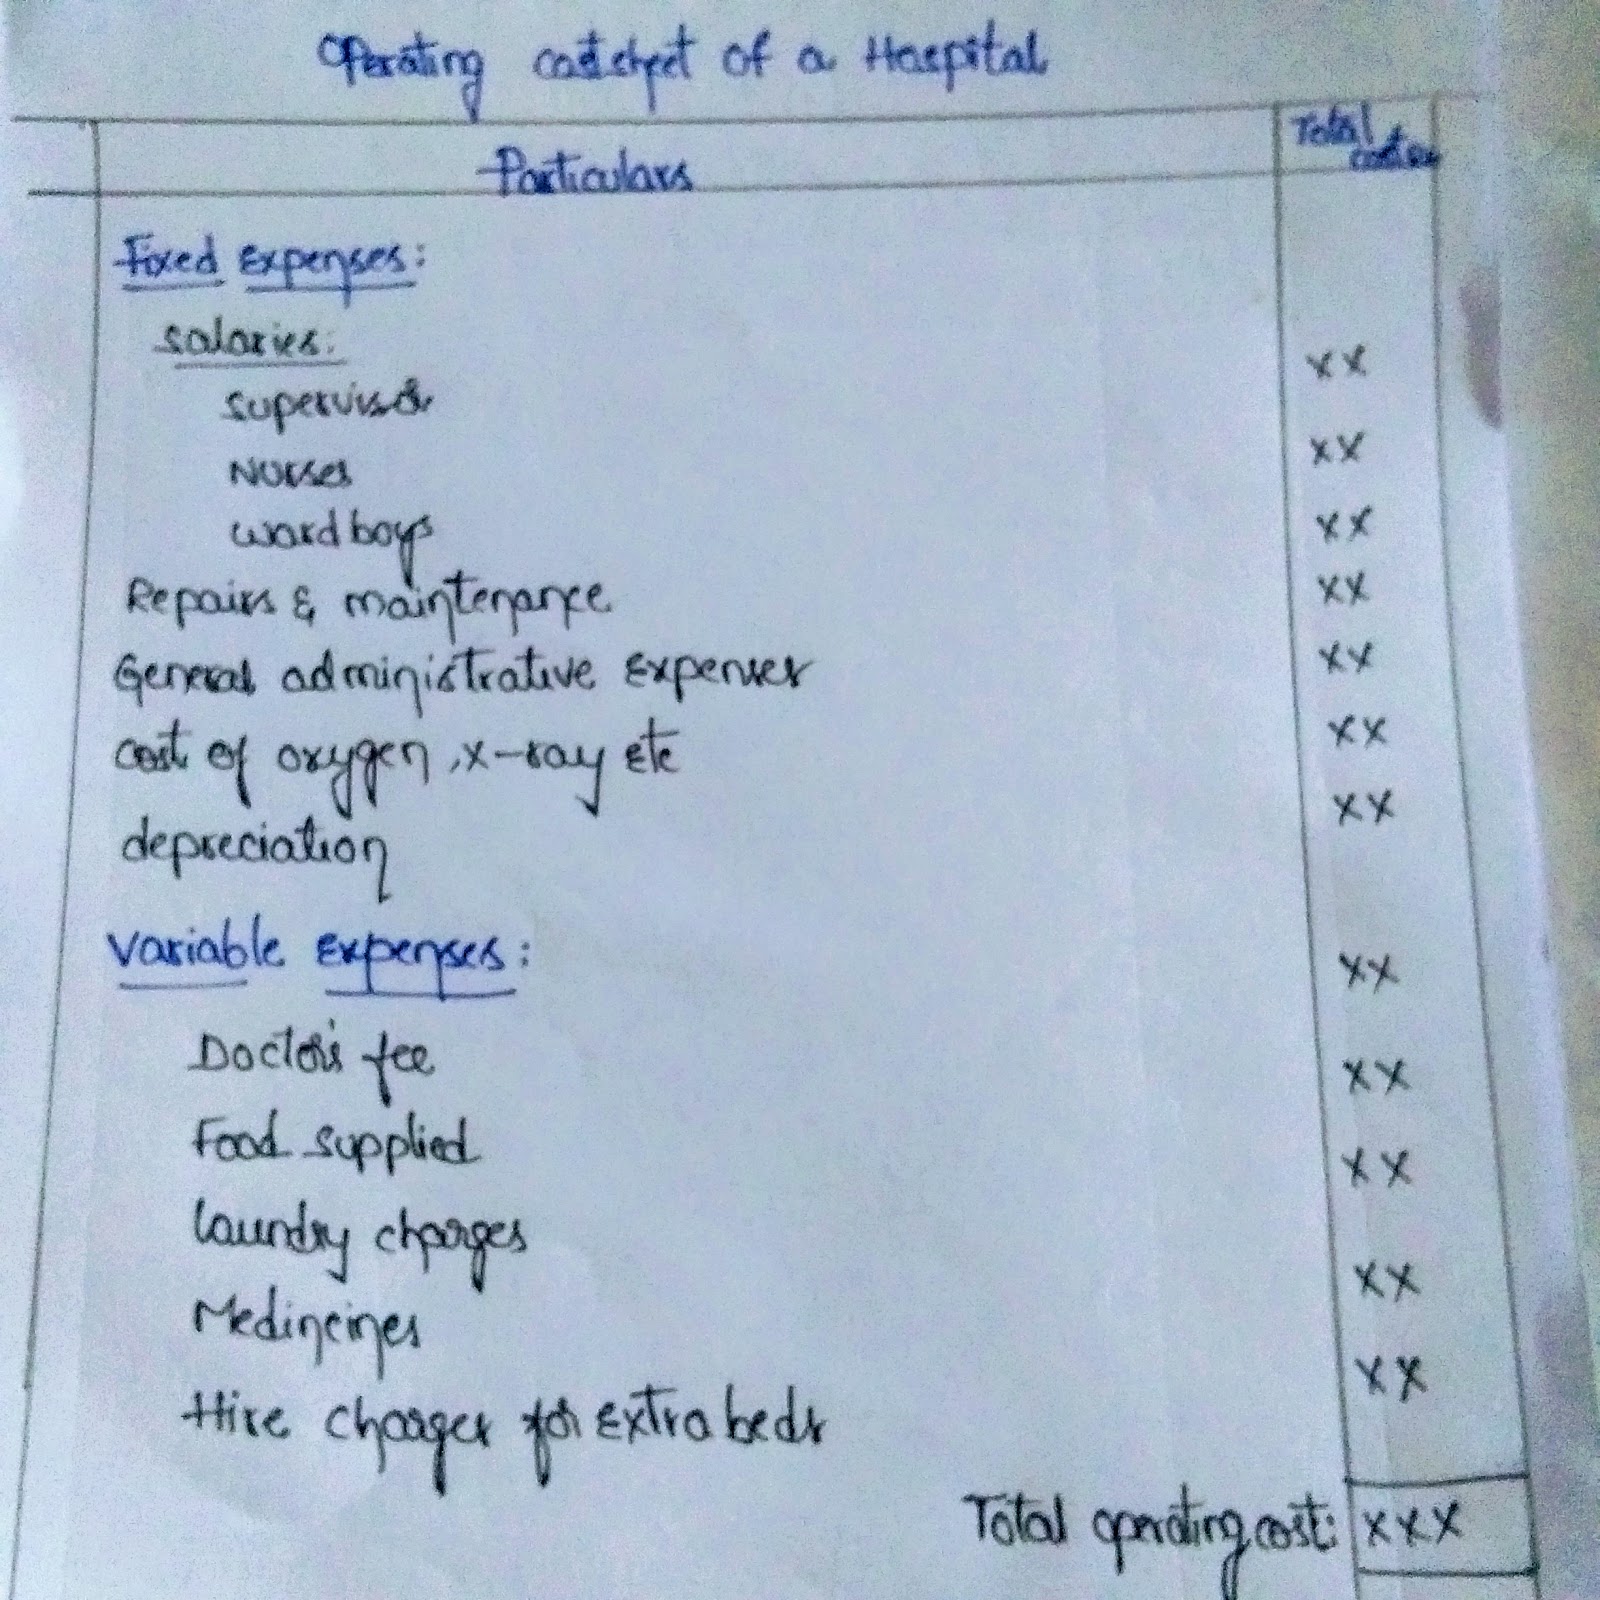 Operating cost sheet of a Hospital
Particulars
Total
Fixed Expenses:
Salaries:
Supervisor
XX
Nurses
XX
Ward boys
XX
Repairs & maintenance
XX
General administrative Expenses
XX
cost of oxygen, x-ray Etc
XX
depreciation
XX
Variable Expenses:
XX
Doctor's fee
XX
Food supplied
XX
Laundry charges
XX
Medincines
XX
Hire charges for Extra beds
Total operating cost: XXX